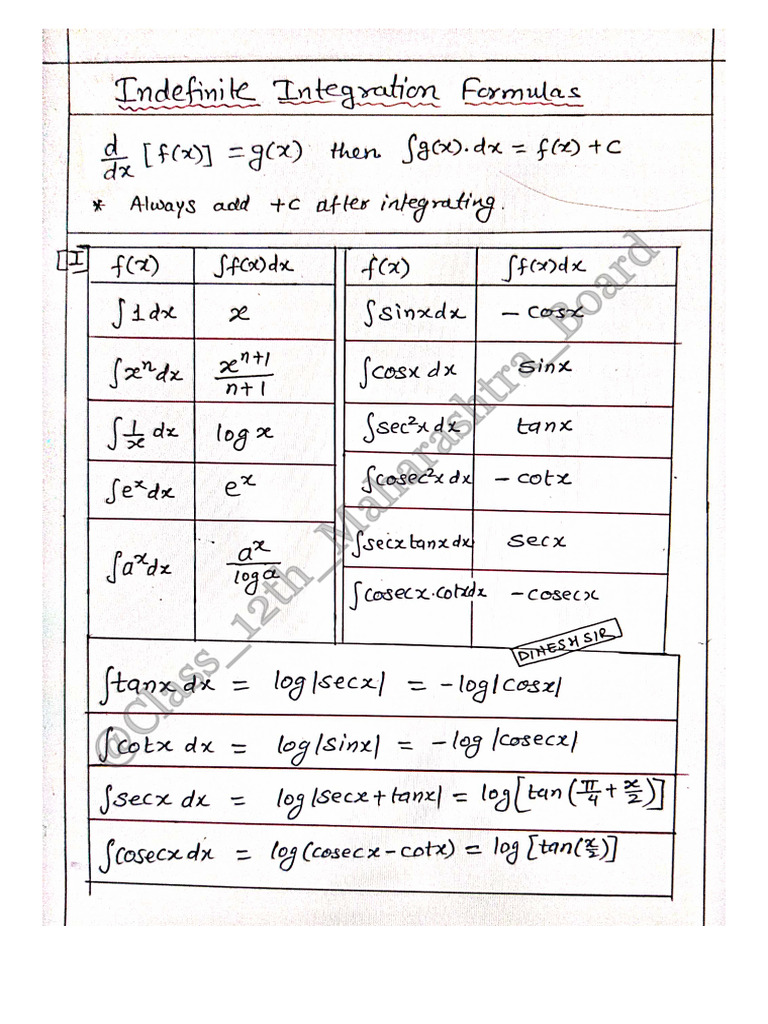 Indefinite Integration Formulas
d/dx [f(x)] = g(x) then ∫g(x).dx = f(x) + C
* Always add +C after integrating.
[I]
f(x) ∫f(x)dx f(x) ∫f(x)dx
∫1dx x ∫sinxdx - cosx
∫xⁿdx xⁿ⁺¹/n+1 ∫cosx dx sinx
∫1/x dx log x ∫sec²x dx tanx
∫eˣdx eˣ ∫cosec²x dx - cotx
∫aˣdx aˣ/loga ∫secxtanxdx secx
∫cosecx.cotxdx -cosecx
DINESH SIR
∫tanx dx = log|secx| = -log|cosx|
∫cotx dx = log|sinx| = -log|cosecx|
∫secx dx = log|secx+tanx| = log[tan(π/4 + x/2)]
∫cosecxdx = log(cosecx-cotx) = log[tan(x/2)]
@Class_12th_Maharashtra_Board